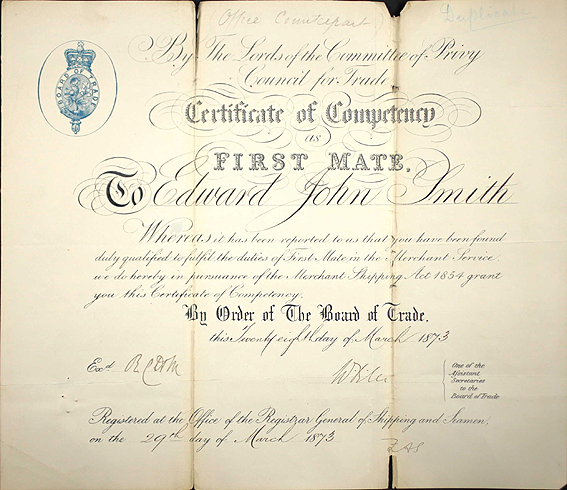 (Office Counterpart)
Duplicate
BOARD OF TRADE
By The Lords of the Committee of Privy
Council for Trade
Certificate of Competency
as
FIRST MATE.
To Edward John Smith
Whereas it has been reported to us that you have been found
duly qualified to fulfil the duties of First Mate in the Merchant Service
we do hereby in pursuance of the Merchant Shipping Act 1854 grant
you this Certificate of Competency.
By Order of The Board of Trade,
this Twenty eighth day of March 1873
Exd.
One of the
Assistant
Secretaries
to the
Board of Trade
Registered at the Office of the Registrar General of Shipping and Seamen,
on the 29th day of March 1873